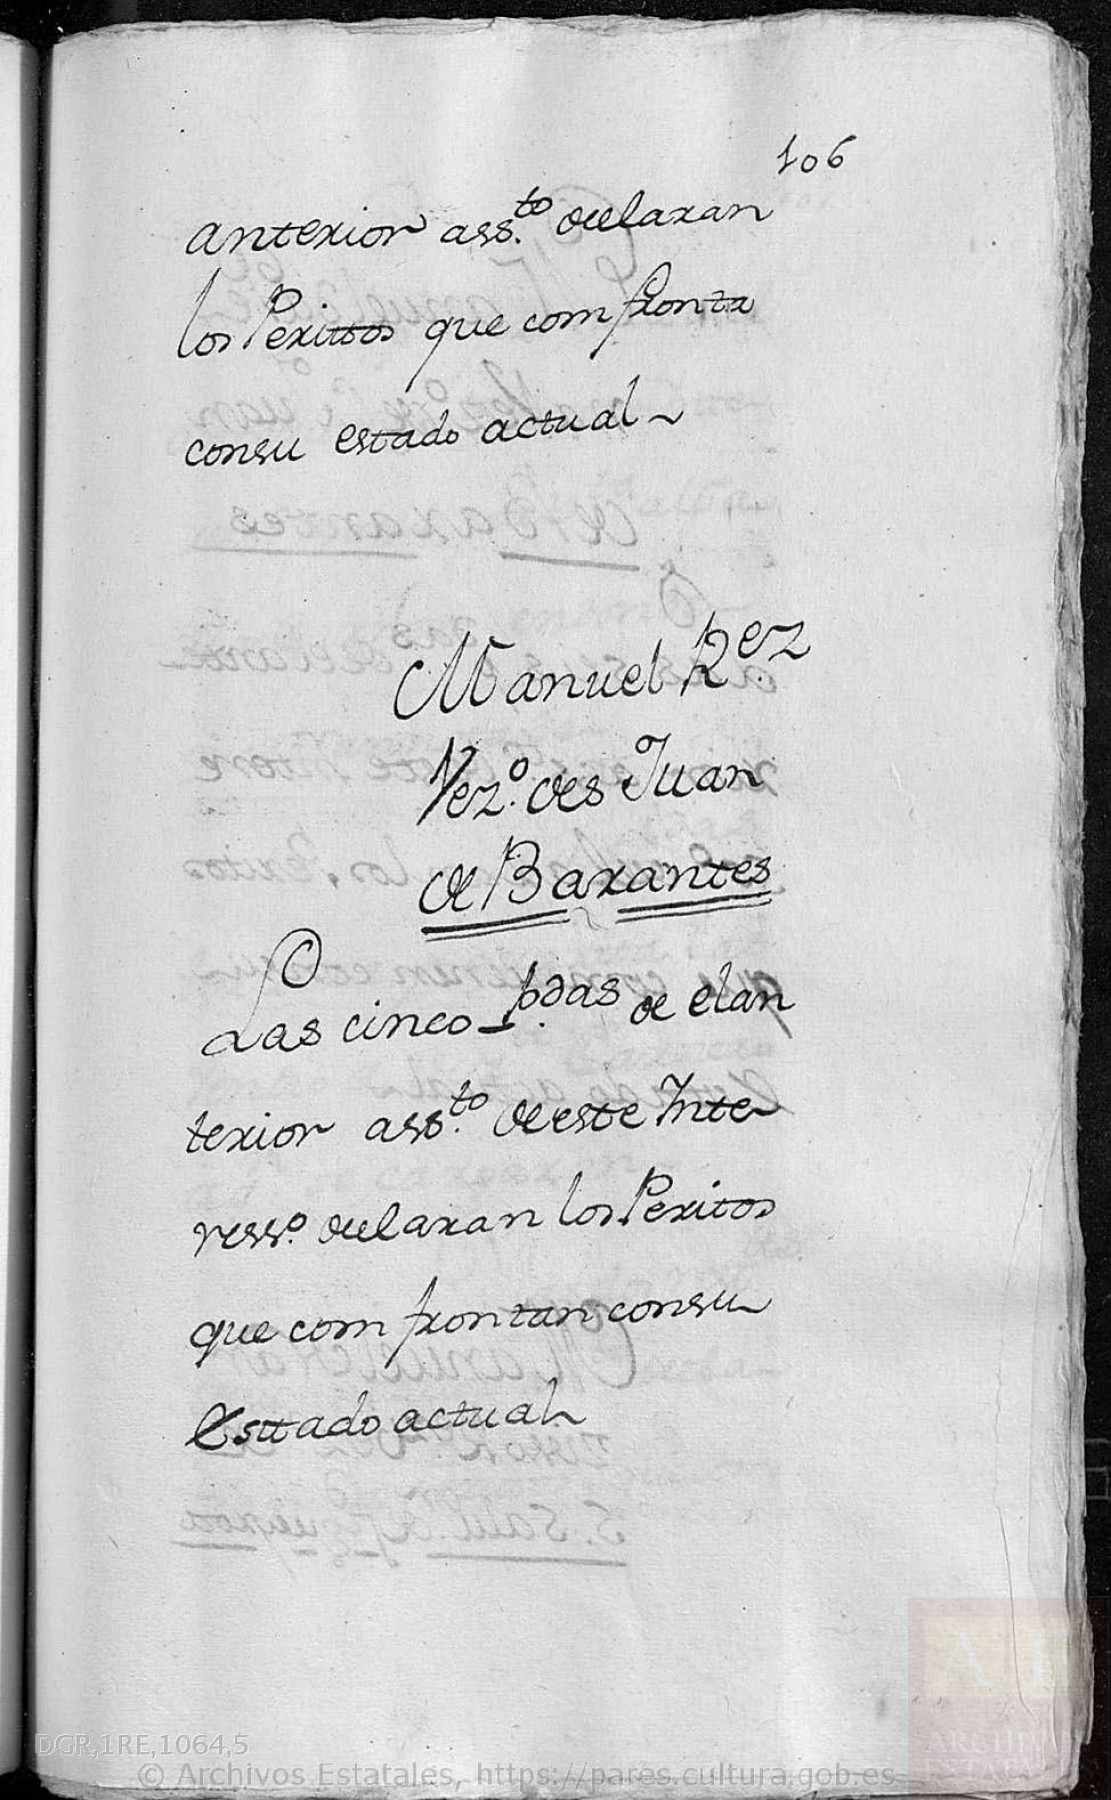 106
anterior ass.to declaran
los Perittos que comfronta
consu estado actual
Manuel Rez
Vez.o de Sn Juan
de Barantes
Las cinco pdas de el an
terior ass.to de este Inte
ress.o declaran los Peritos
que comfrontan consu
Esttado actual
DGR,1RE,1064,5
© Archivos Estatales, https://pares.cultura.gob.es